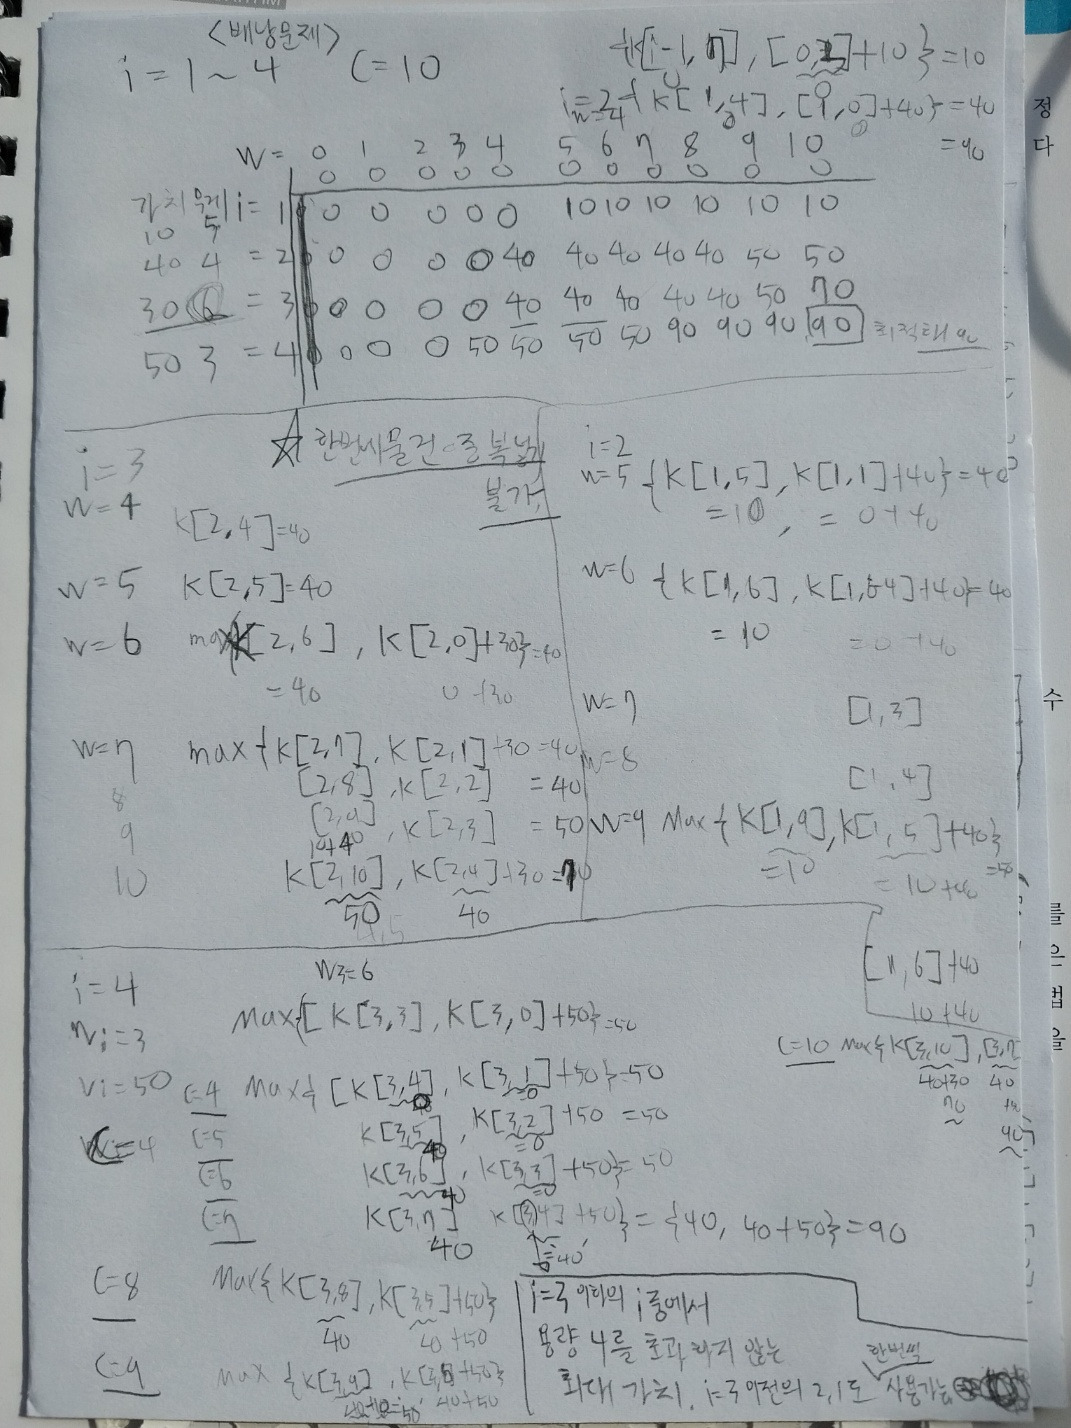 <배낭문제>
i = 1 ~ 4 C = 10
{K[i-1, 7], [0,2]+10} = 10
i=2 w=4 { K[1,4], [1,0]+40} = 40
= 90
W = 0 1 2 3 4 5 6 7 8 9 10
0 0 0 0 0 0 0 0 0 0 0
가치 무게 i = 1 0 0 0 0 0 10 10 10 10 10 10
10 5
40 4 = 2 0 0 0 0 40 40 40 40 40 50 50
30 6 = 3 0 0 0 0 40 40 40 40 40 50 70
50 3 = 4 0 0 0 50 50 50 50 90 90 90 90 최적해 90
☆ 한번씩 물건 중복넣기
불가,
i = 3
W = 4
K[2,4]=40
W = 5 K[2,5]=40
W = 6 max K[2,6] , K[2,0]+30} = 40
= 40 0 +30
W = 7 max {K[2,7], K[2,1] +30 = 40
8 [2,8] , K[2,2] = 40
9 [2,9] , K[2,3] = 50
10+40
10 K[2,10] , K[2,4]+30 = 70
50 40
i=2
w=5 {K[1,5], K[1,1]+40} = 40
= 10 , = 0+40
W=6 {K[1,6], K[1,6-4]+40} = 40
= 10 = 0 +40
W=7 [1,3]
W=8 [1,4]
W=9 Max {K[1,9],K[1,5]+40}
=10 = 10+40 =50
[1,6]+40
10 +40
i = 4 W3=6
Wi=3 Max{[ K[3,3], K[3,0]+50} = 50
Vi = 50 C=4 Max{ [K[3,4], K[3,1]+50} = 50
40 =0
C=4 C=5 K[3,5], K[3,2]+50 = 50
40 =0
C=6 K[3,6], K[3,3]+50} = 50
40 =0
C=7 K[3,7] K[3,4] +50} = {40, 40+50} = 90
40 =40
C=8 Max{K[3,8],K[3,5]+50}
40 40 +50
C=9 max {K[3,9] , K[3,6]+50}
=50 40+50
C=10 Max{K[3,10],[3,7]
40+30 40
70
90
i=3 이하의 i 중에서
용량 4를 초과하지 않는
최대 가치. i=3 이전의 2,1도 한번씩 사용가능